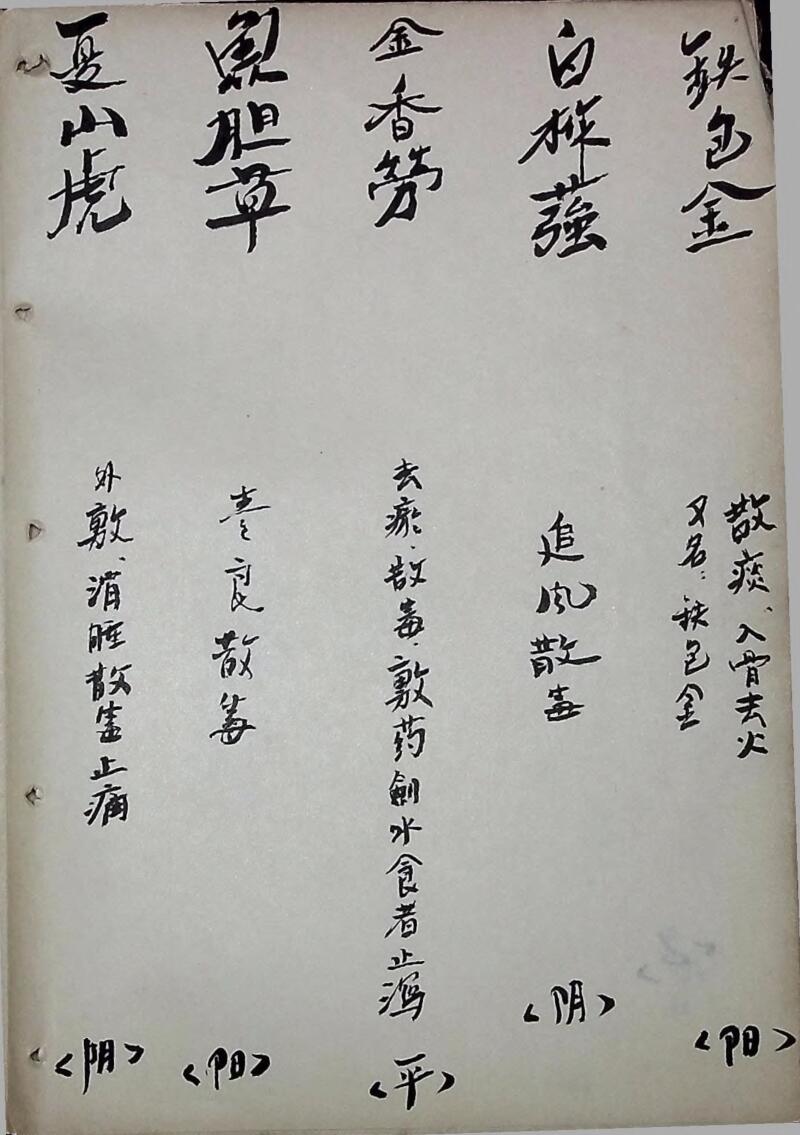 鉄包金
散痰、入骨去火
又名：铁包金
<阳>
白柞蕴
追风散毒
<阴>
金香劳
去瘀、散毒、敷药劍水食者止泻
<平>
鱼胆草
良散毒
<阳>
山虎
外敷、消腫散毒止痛
<阴>